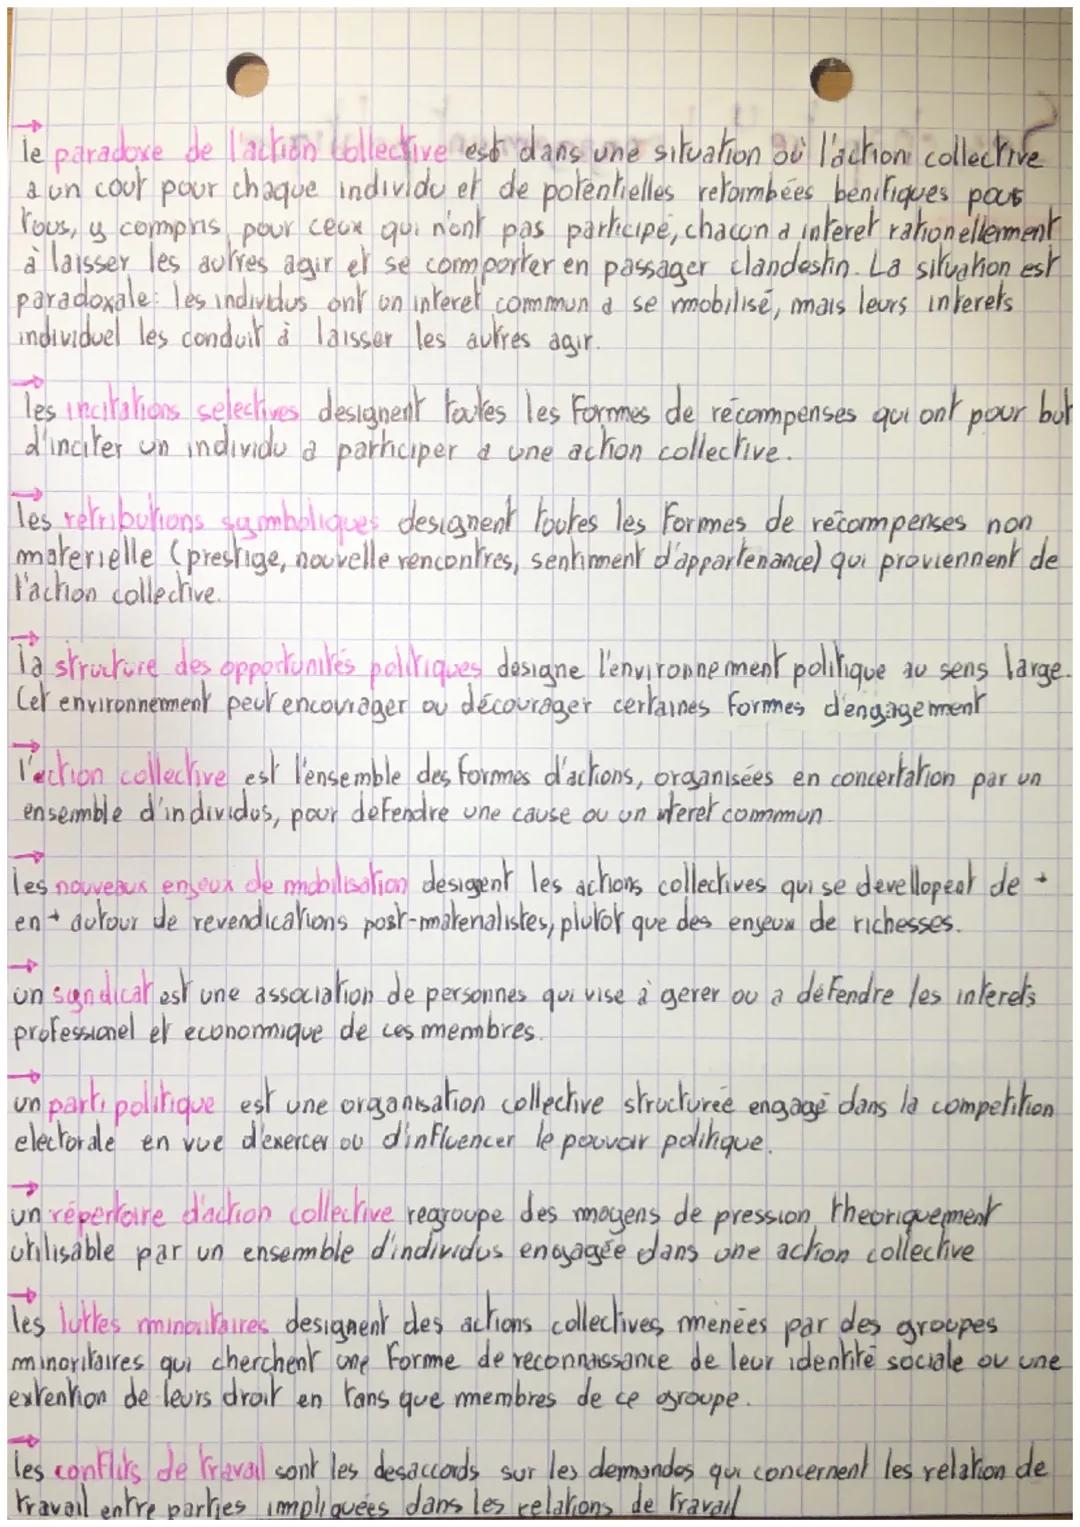 le paradoxe de l'action collective est dans une situation où l'action collective
a un cout pour chaque individu et de potentielles retombées benifiques pour
tous, y compris pour ceux qui n'ont pas participé, chacun a interet rationellement
à laisser les autres agir et se comporter en passager clandestin. La situation est
paradoxale: les individus ont un interet commun a se mobilisé, mais leurs interets
individuel les conduit à laisser les autres agir.
les incitations selectives designent toutes les formes de récompenses qui ont pour but
d'inciter un individu a participer a une action collective.
les retributions symboliques designent toutes les formes de récompenses non
materielle (prestige, nouvelle rencontres, sentiment d'appartenance) qui proviennent de
l'action collective.
la structure des opportunités politiques designe l'environnement politique au sens large.
Cet environnement peut encourager ou décourager certaines formes d'engagement
l'action collective est l'ensemble des formes d'actions, organisées en concertation par un
ensemble d'individus, pour defendre une cause ou un interet commun.
les nouveaux enjeux de mobilisation desigent les actions collectives qui se devellopent de +
en + autour de revendications post-materialistes, plutot que des enjeux de richesses.
un syndicat est une association de personnes qui vise à gerer ou a défendre les interets
professionel et economique de ces membres.
un parti politique est une organisation collective structurée engagé dans la competition
electorale en vue d'exercer ou d'influencer le pouvoir politique.
un répertoire d'action collective regroupe des moyens de pression theoriquement
utilisable par un ensemble d'individus engagée dans une action collective
les luttes minoritaires designent des actions collectives menées par des groupes
minoritaires qui cherchent une forme de reconnaissance de leur identité sociale ou une
extention de leurs droit en tans que membres de ce groupe.
les conflits de travail sont les desaccords sur les demandes qui concernent les relation de
travail entre parties impliquées dans les relations de travail